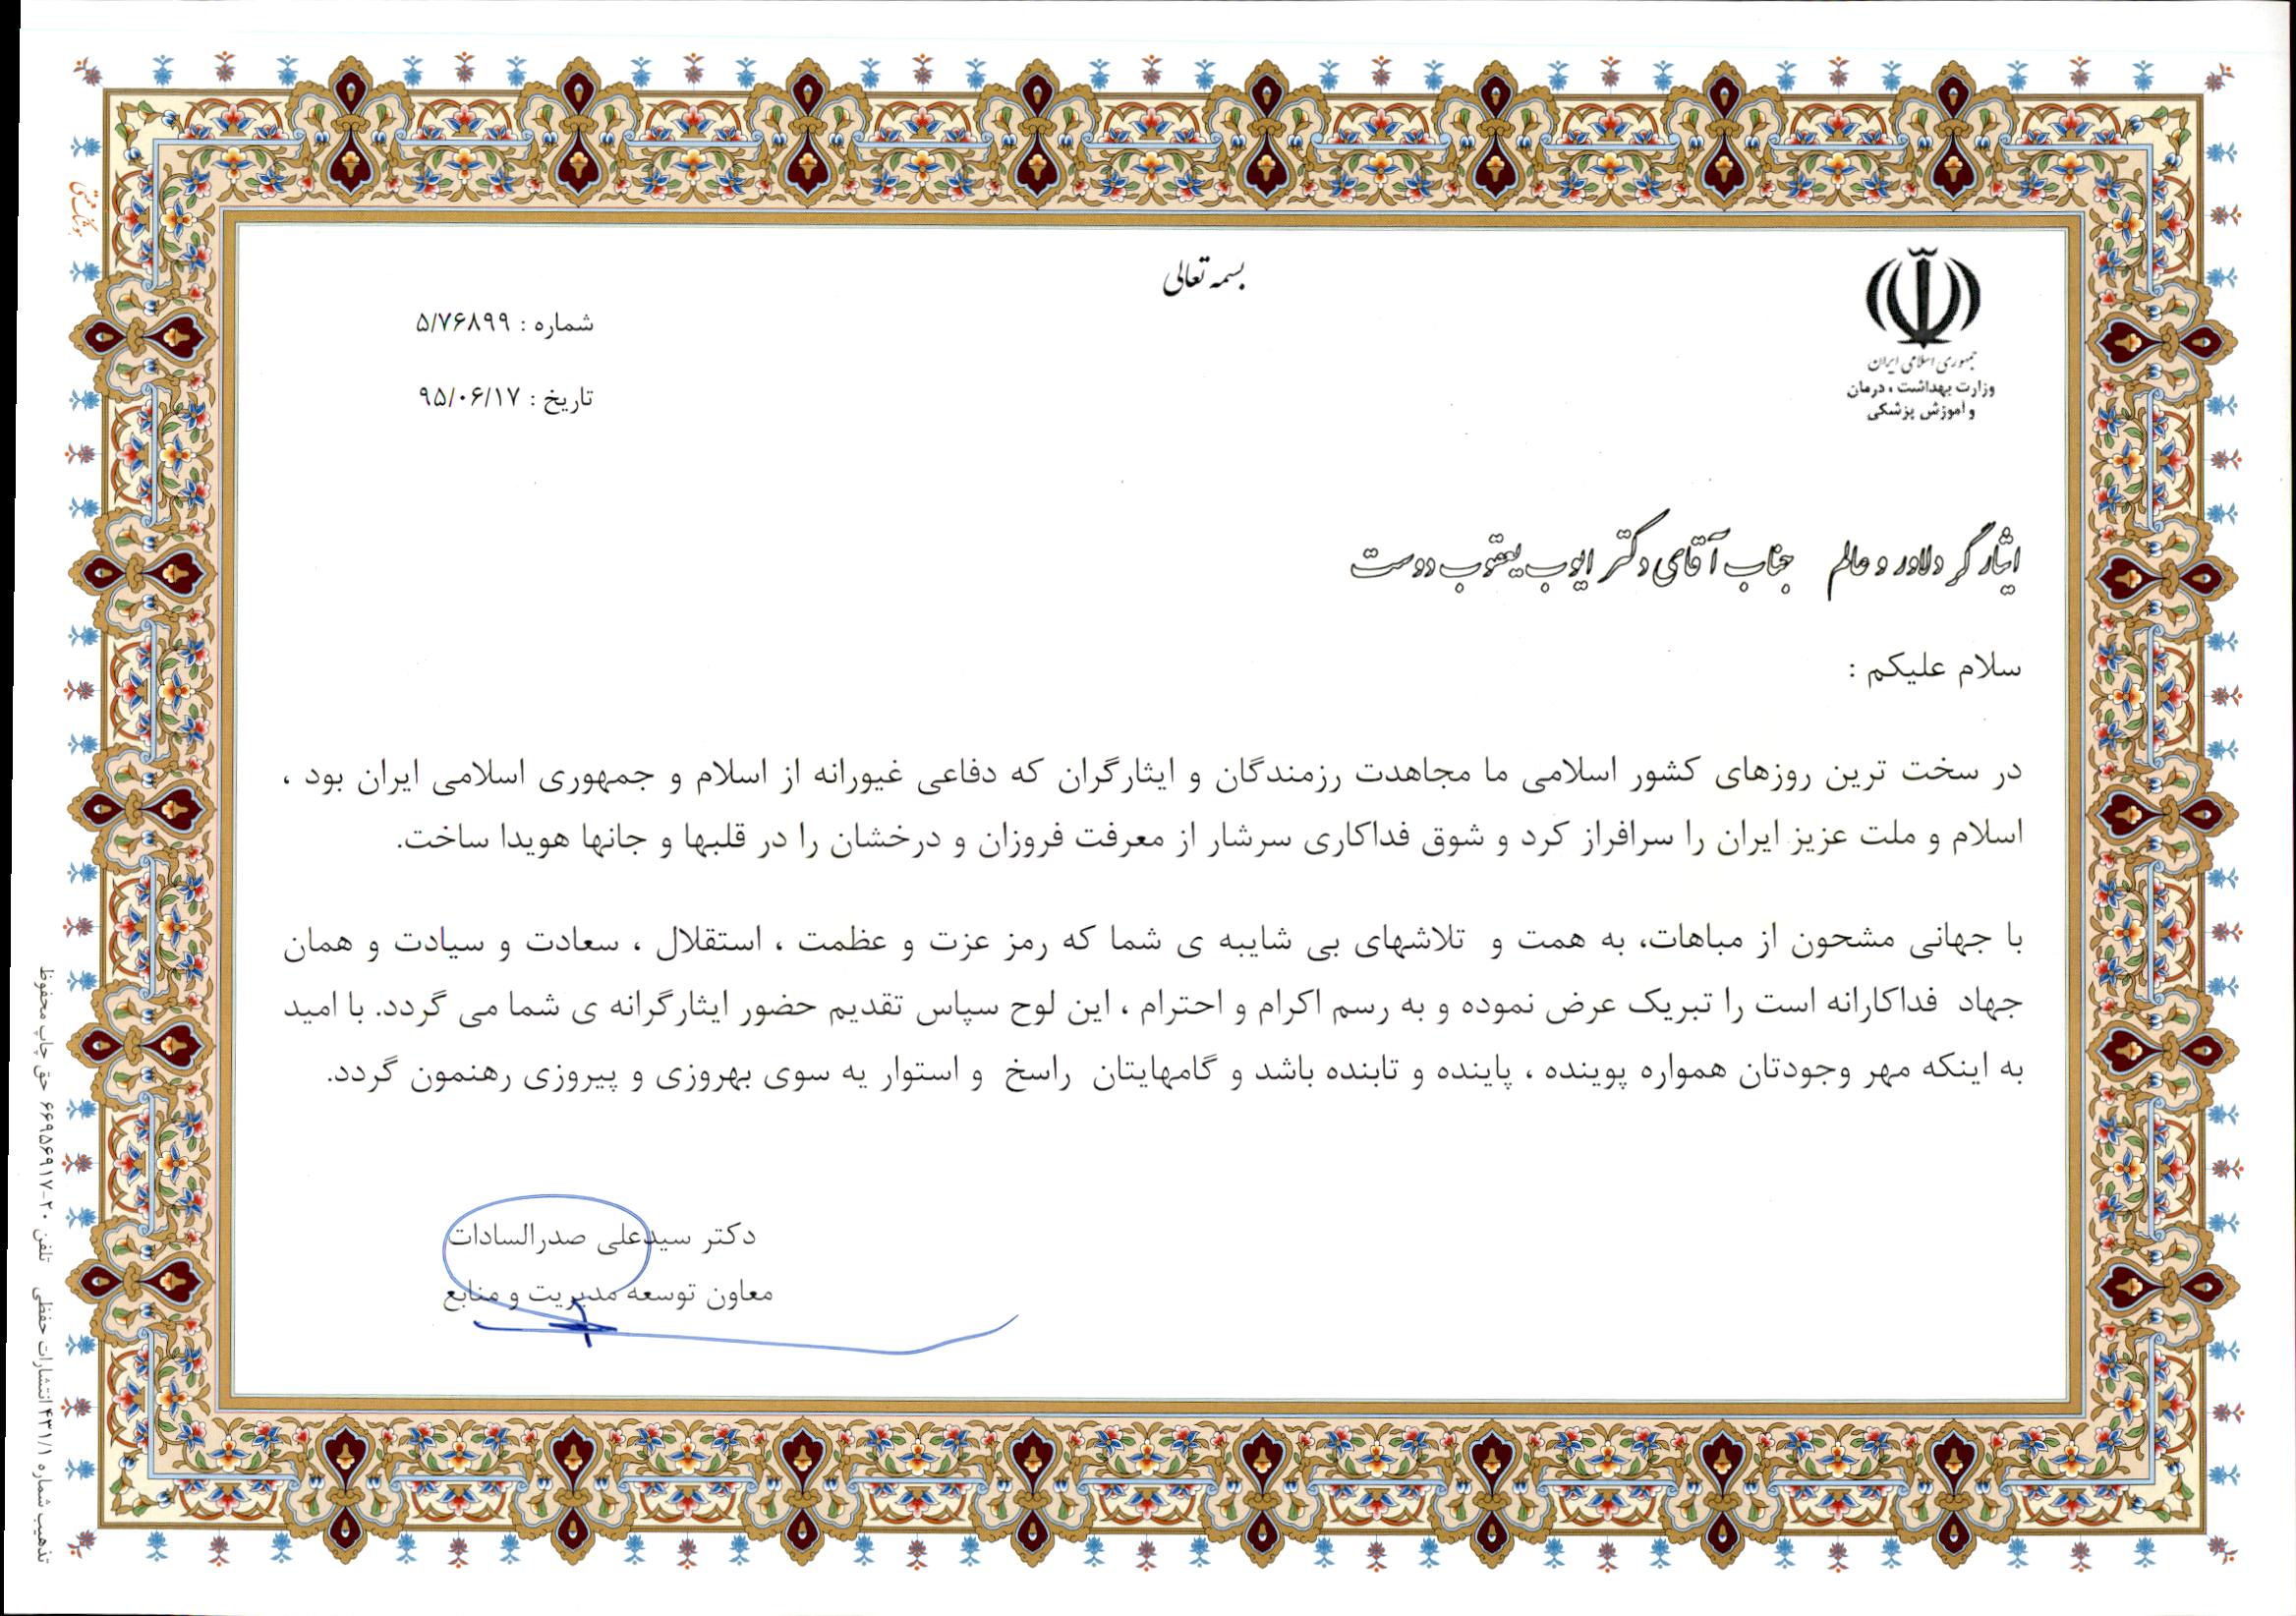 بسمه تعالی
جمهوری اسلامی ایران
وزارت بهداشت ، درمان
و آموزش پزشکی
شماره : ۵/۷۶۸۹۹
تاریخ : ۹۵/۰۶/۱۷
ایثارگر دلاور و عالم جناب آقای دکتر ایوب یعقوب دوست
سلام علیکم :
در سخت ترین روزهای کشور اسلامی ما مجاهدت رزمندگان و ایثارگران که دفاعی غیورانه از اسلام و جمهوری اسلامی ایران بود ،
اسلام و ملت عزیز ایران را سرافراز کرد و شوق فداکاری سرشار از معرفت فروزان و درخشان را در قلبها و جانها هویدا ساخت.
با جهانی مشحون از مباهات، به همت و تلاشهای بی شایبه ی شما که رمز عزت و عظمت ، استقلال ، سعادت و سیادت و همان
جهاد فداکارانه است را تبریک عرض نموده و به رسم اکرام و احترام ، این لوح سپاس تقدیم حضور ایثارگرانه ی شما می گردد. با امید
به اینکه مهر وجودتان همواره پوینده ، پاینده و تابنده باشد و گامهایتان راسخ و استوار یه سوی بهروزی و پیروزی رهنمون گردد.
دکتر سیدعلی صدرالسادات
معاون توسعه مدیریت و منابع
تذهیب شماره ۴۳۱/۱ انتشارات حفظی تلفن ۲۰-۶۶۹۵۶۹۱۷ حق چاپ محفوظ